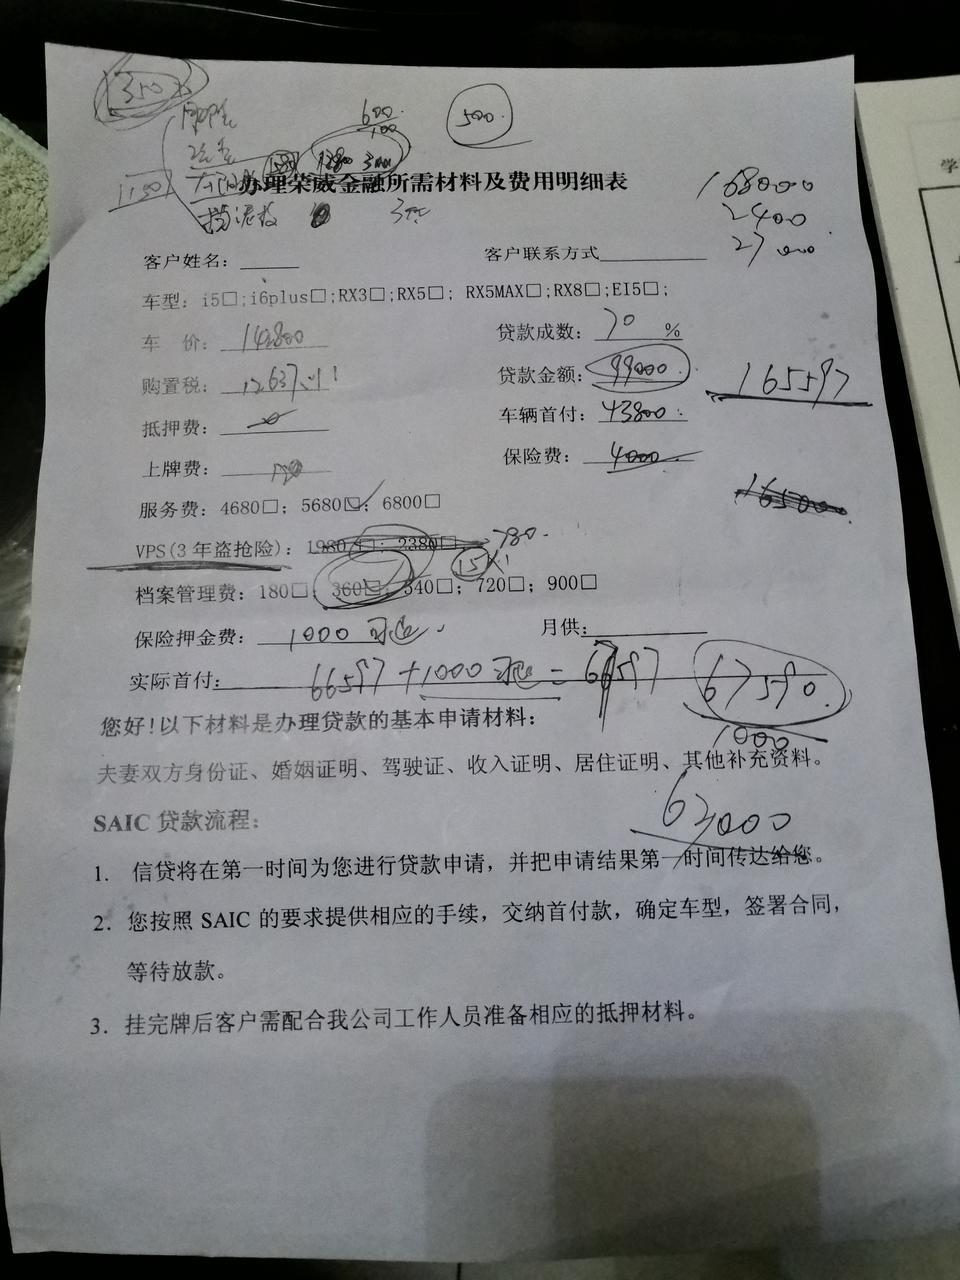 350
600
100
500
1150
办理荣威金融所需材料及费用明细表
168000
2400
27000
客户姓名：
客户联系方式
车型：i5□;i6plus□;RX3□;RX5□; RX5MAX□;RX8□;EI5□;
车 价： 142800
贷款成数： 70 %
购置税： 12637
贷款金额： 99000
165597
抵押费：
车辆首付： 43800
上牌费：
保险费： 4000
16500
服务费：4680□；5680□；6800□
VPS(3年盗抢险)：1980□；2380□ 780
15
档案管理费：180□；360□；540□；720□；900□
保险押金费： 1000 可退
月供：
实际首付： 66597+1000可退=67597
67590
1000
您好！以下材料是办理贷款的基本申请材料：
夫妻双方身份证、婚姻证明、驾驶证、收入证明、居住证明、其他补充资料。
SAIC 贷款流程：
1. 信贷将在第一时间为您进行贷款申请，并把申请结果第一时间传达给您。
2. 您按照 SAIC 的要求提供相应的手续，交纳首付款，确定车型，签署合同，
等待放款。
3. 挂完牌后客户需配合我公司工作人员准备相应的抵押材料。
学